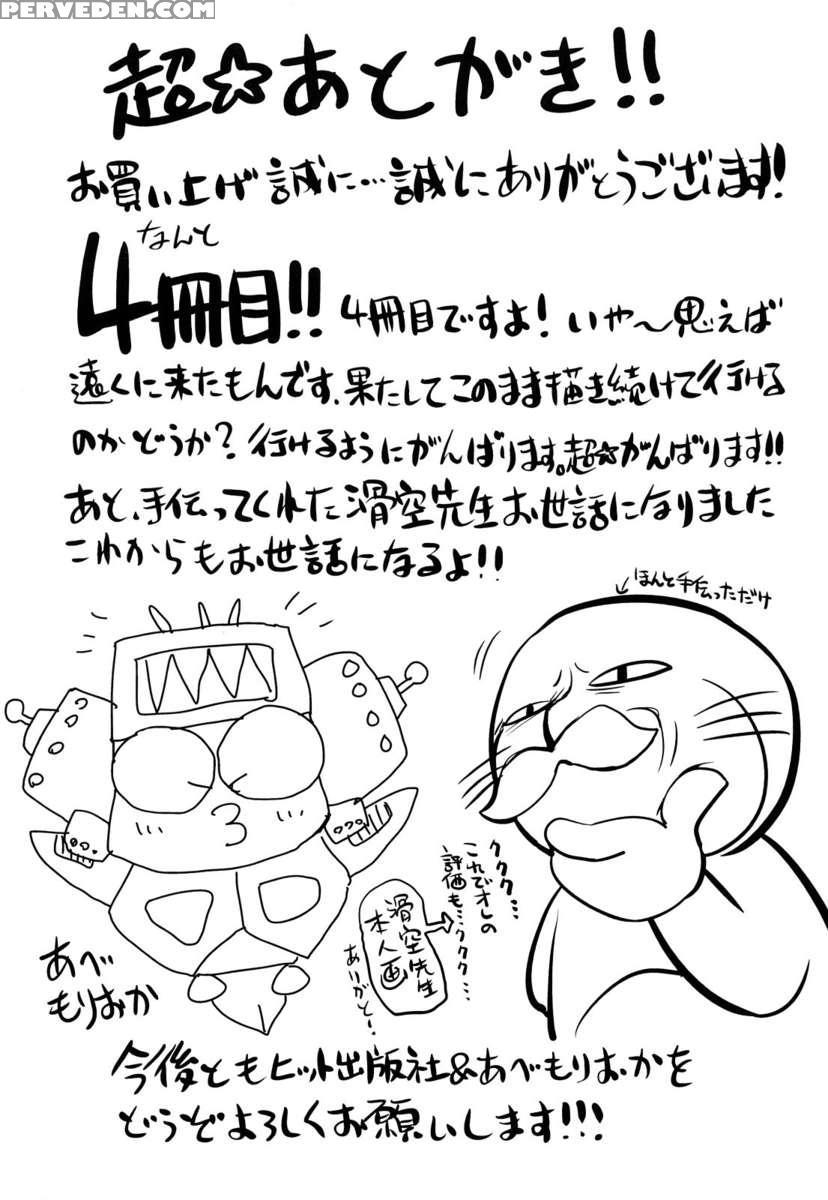 PERVEDEN.COM
超☆あとがき!!
お買い上げ誠に…誠にありがとうございます!
なんと
4冊目!! 4冊目ですよ! いや〜思えば
遠くに来たもんです、果たしてこのまま描き続けて行ける
のかどうか? 行けるようにがんばります。超☆がんばります!!
あと、手伝ってくれた滑空先生お世話になりました
これからもお世話になるよ!!
ほんと手伝っただけ
ククク…
これでオレの
評価も…ククク…
滑空先生
本人画
ありがと〜!
あべ
もりおか
今後ともヒット出版社&あべもりおかを
どうぞよろしくお願いします!!!